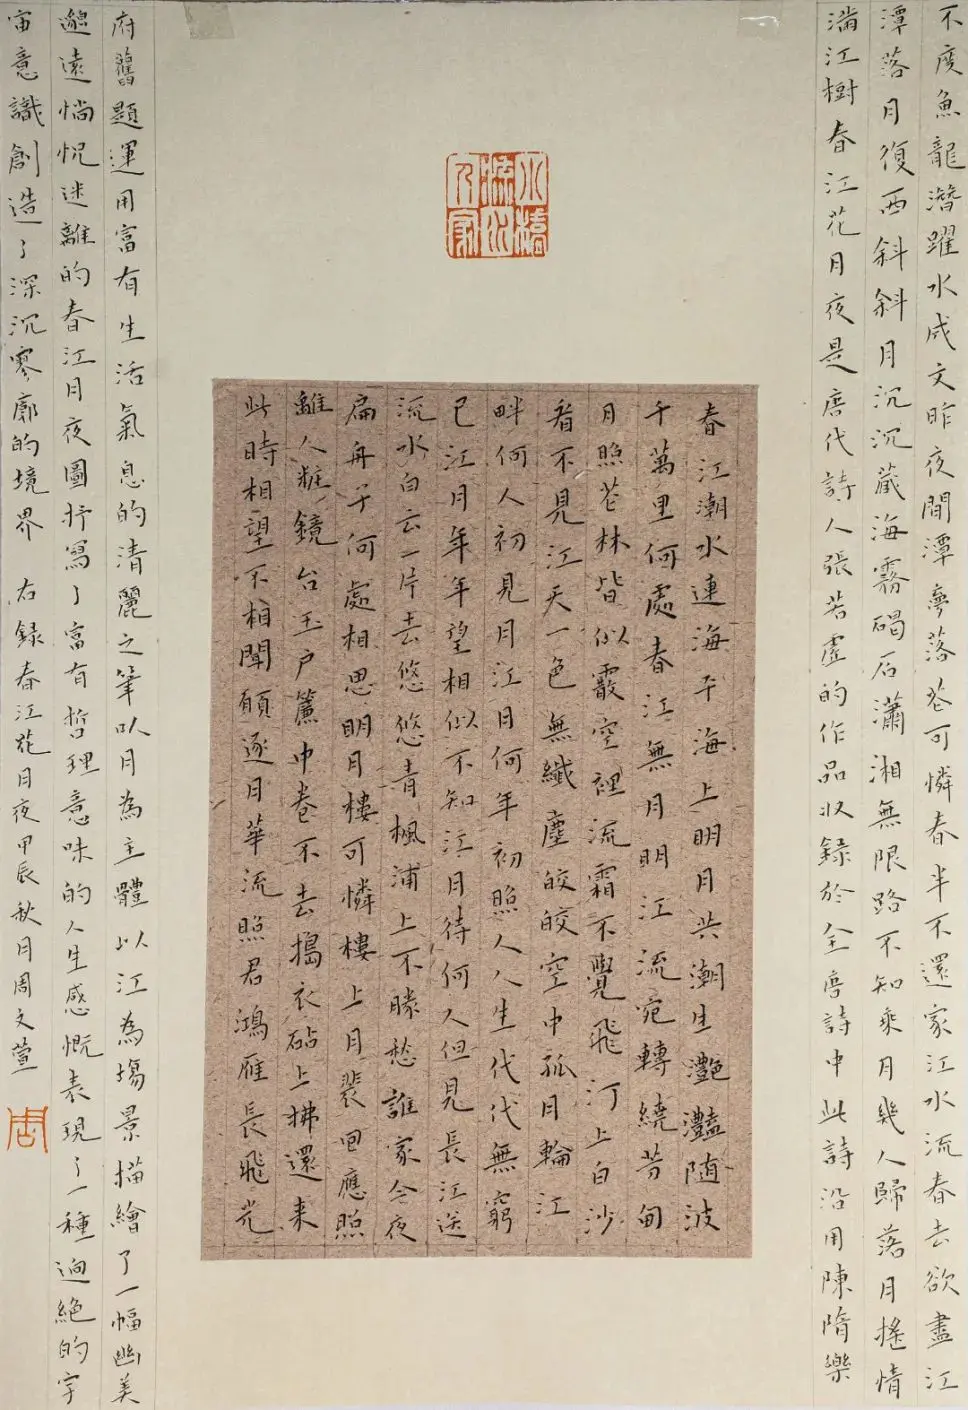 小橋
流水
人家
春江潮水連海平海上明月共潮生灩灩随波
千萬里何處春江無月明江流宛轉繞芳甸
月照花林皆似霰空裡流霜不覺飛汀上白沙
看不見江天一色無纖塵皎皎空中孤月輪江
畔何人初見月江月何年初照人人生代代無窮
已江月年年望相似不知江月待何人但見長江送
流水白云一片去悠悠青楓浦上不勝愁誰家今夜
扁舟子何處相思明月樓可憐樓上月裴回應照
離人粧鏡台玉户簾中卷不去搗衣砧上拂還来
此時相望不相聞願逐月華流照君鴻雁長飛光
不度魚龍潛躍水成文昨夜閒潭夢落花可憐春半不還家江水流春去欲盡江
潭落月復西斜斜月沉沉藏海霧碣石瀟湘無限路不知乘月幾人歸落月搖情
滿江樹春江花月夜是唐代詩人張若虛的作品收録於全唐詩中此詩沿用陳隋樂
府舊題運用富有生活氣息的清麗之筆以月為主體以江為場景描繪了一幅幽美
邈遠惝怳迷離的春江月夜圖抒寫了富有哲理意味的人生感慨表現了一種迥絕的宇
宙意識創造了深沉寥廓的境界 右録春江花月夜甲辰秋月周文萱
周